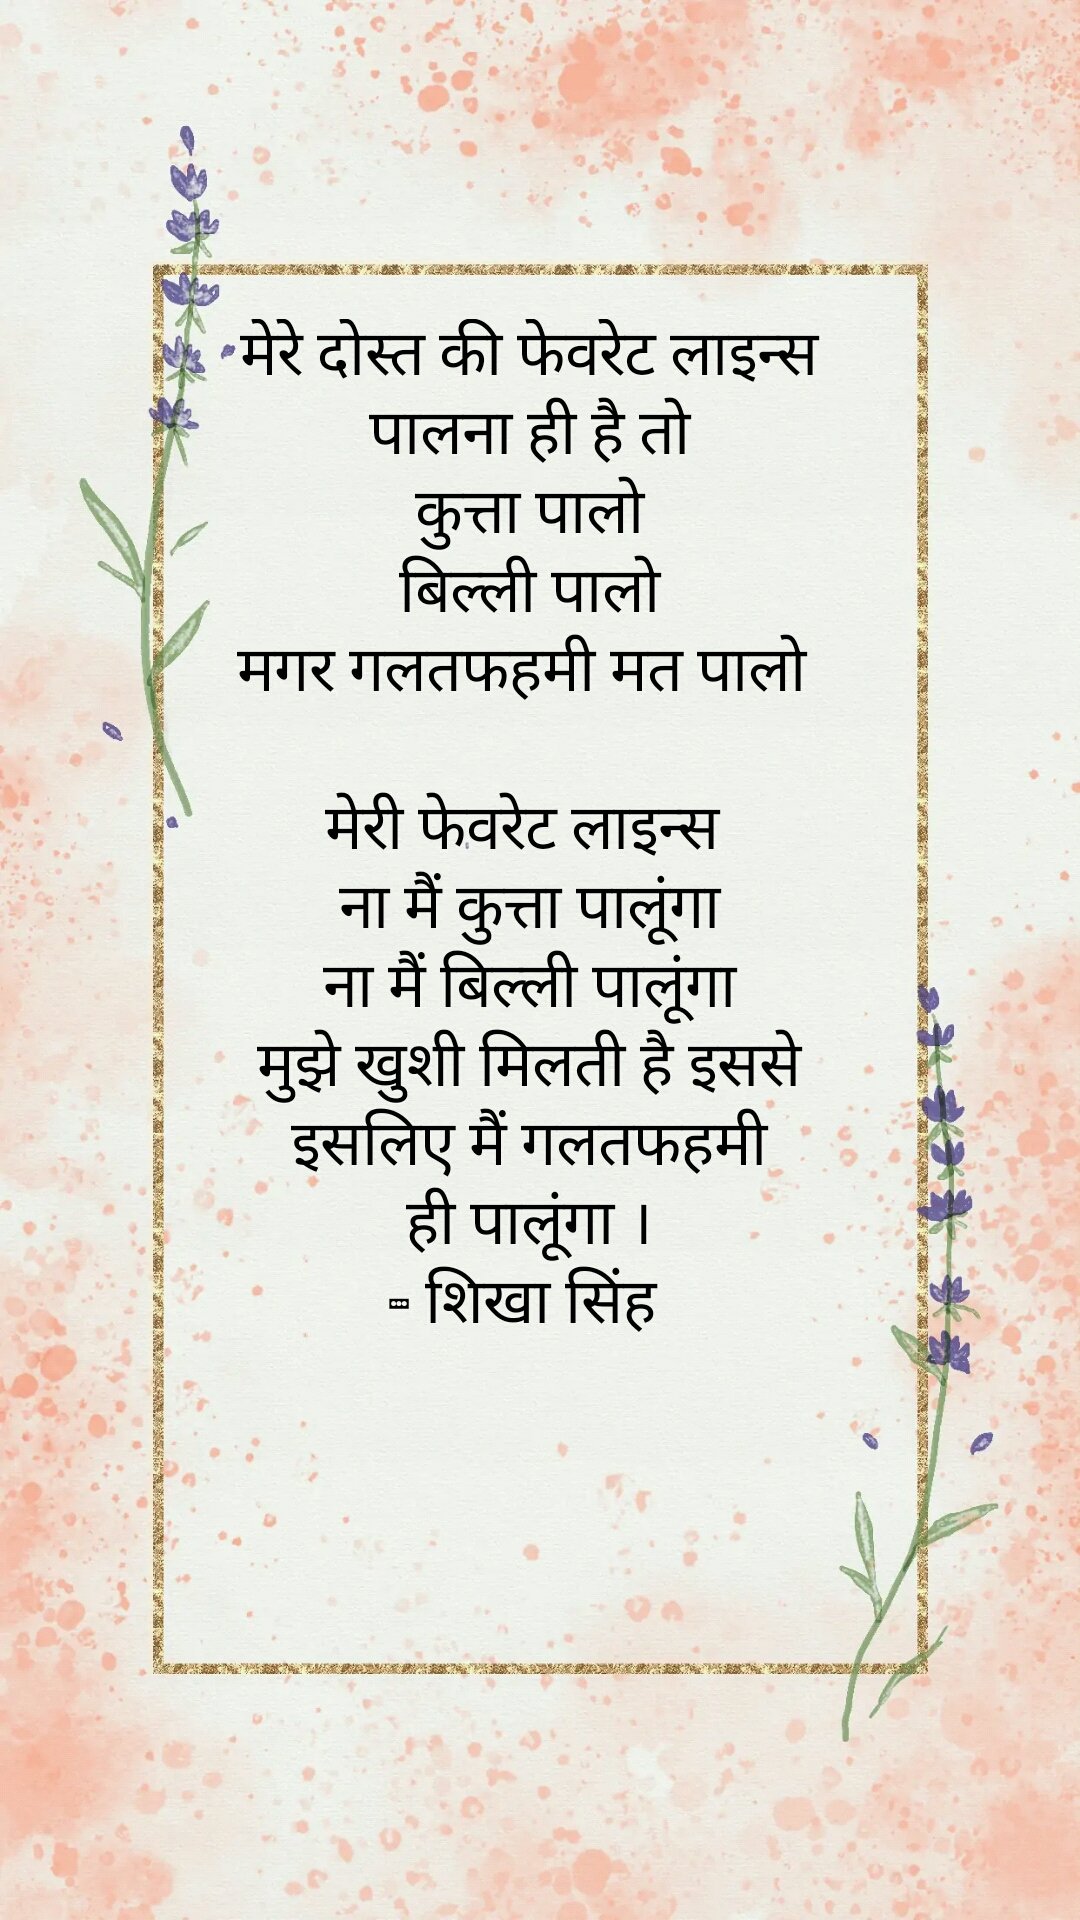 मेरे दोस्त की फेवरेट लाइन्स
पालना ही है तो
कुत्ता पालो
बिल्ली पालो
मगर गलतफहमी मत पालो
मेरी फेवरेट लाइन्स
ना मैं कुत्ता पालूंगा
ना मैं बिल्ली पालूंगा
मुझे खुशी मिलती है इससे
इसलिए मैं गलतफहमी
ही पालूंगा ।
- शिखा सिंह